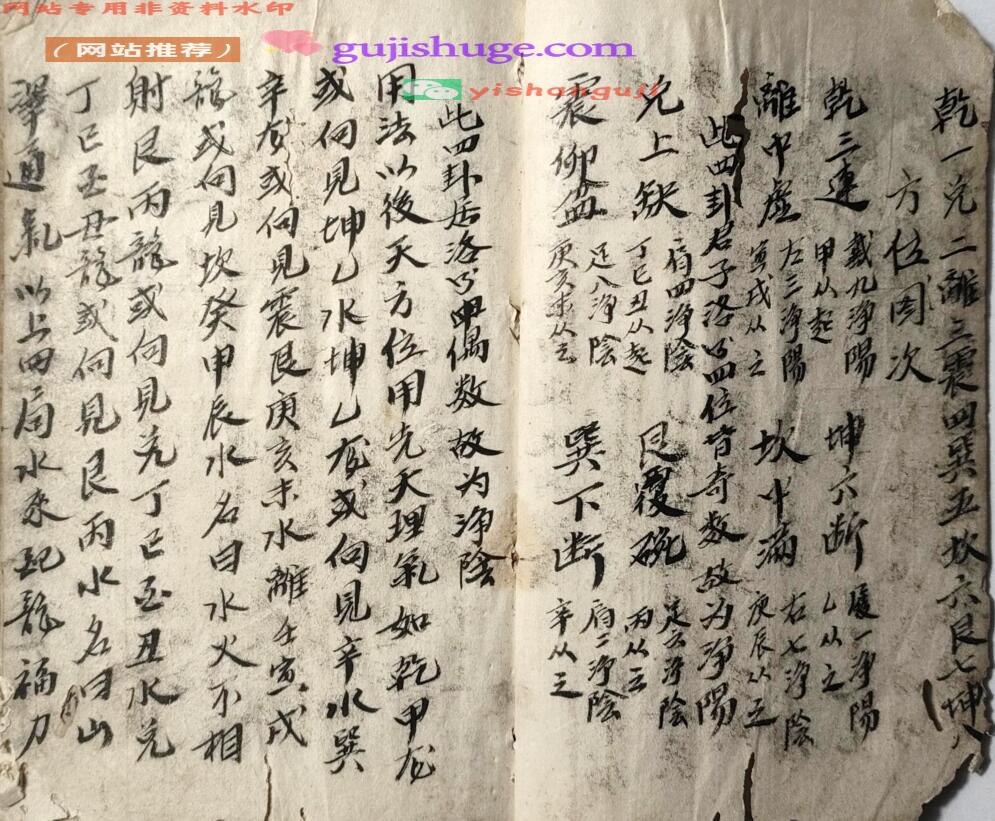 网站专用非资料水印
（网站推荐）
gujishuge.com
yishanguji
乾一兑二離三震四巽五坎六艮七坤八
方位图次
乾三連 戴九淨陽 甲从起 坤六断 履一淨陽 乙从之
離中虚 左三淨陽 寅戌从之 坎中满 右七淨陰 庚辰从之
此四卦君子洛公四位皆奇数故为淨陽
兑上缺 肩四淨陰 丁巳丑从起 艮覆碗 足六淨陰 丙从之
震仰盂 足八淨陰 庚亥未从之 巽下断 肩二淨陰 辛从之
此四卦居洛公偶数故为淨陰
用法以後天方位用先天理氣如乾甲龙
或向見坤乙水坤乙龙或向見辛水巽
辛龙或向見震艮庚亥未水離壬寅戌
龍或向見坎癸申辰水名曰水火不相
射艮丙龍或向見兑丁巳丑水兑
丁巳丑龍或向見艮丙水名曰山
澤通氣以上四局水来配龍福力